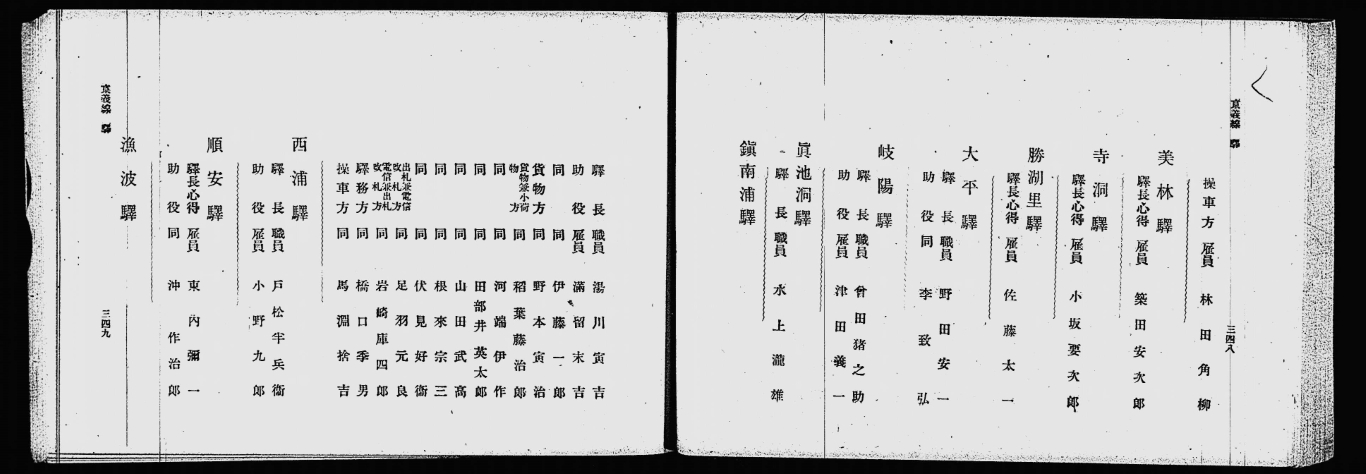 京義線 驛
三四八
操車方 雇員 林田角柳
美林驛
驛長心得 雇員 築田安次郎
寺洞驛
驛長心得 雇員 小坂要次郎
勝湖里驛
驛長心得 雇員 佐藤太一
大平驛
驛長 職員 野田安一
助役 同 李致弘
岐陽驛
驛長 職員 曾田猪之助
助役 雇員 津田義一
眞池洞驛
驛長 職員 水上瀧雄
鎭南浦驛
驛長 職員 湯川寅吉
助役 雇員 滿留末吉
同 同 伊藤一郎
貨物方 同 野本寅治
貨物兼小荷物方 同 稻葉藤治郎
同 同 河端伊作
同 同 田部井英太郎
同 同 山田武高
同 同 根來宗三
同 同 伏見好衞
出札兼電信改札方 同 足羽元良
電信兼出札改札方 同 岩崎庫四郎
驛務方 同 橋口季男
操車方 同 馬淵捨吉
西浦驛
驛長 職員 戸松半兵衞
助役 雇員 小野九郎
順安驛
驛長心得 雇員 東內彌一
助役 同 沖作治郎
漁波驛
京義線 驛
三四九